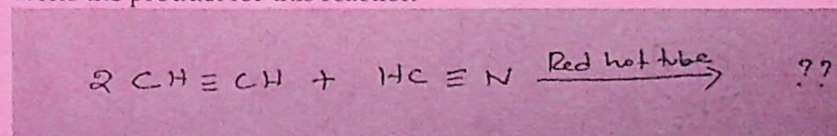 2 CH ≡ CH + HC ≡ N Red hot tube ??